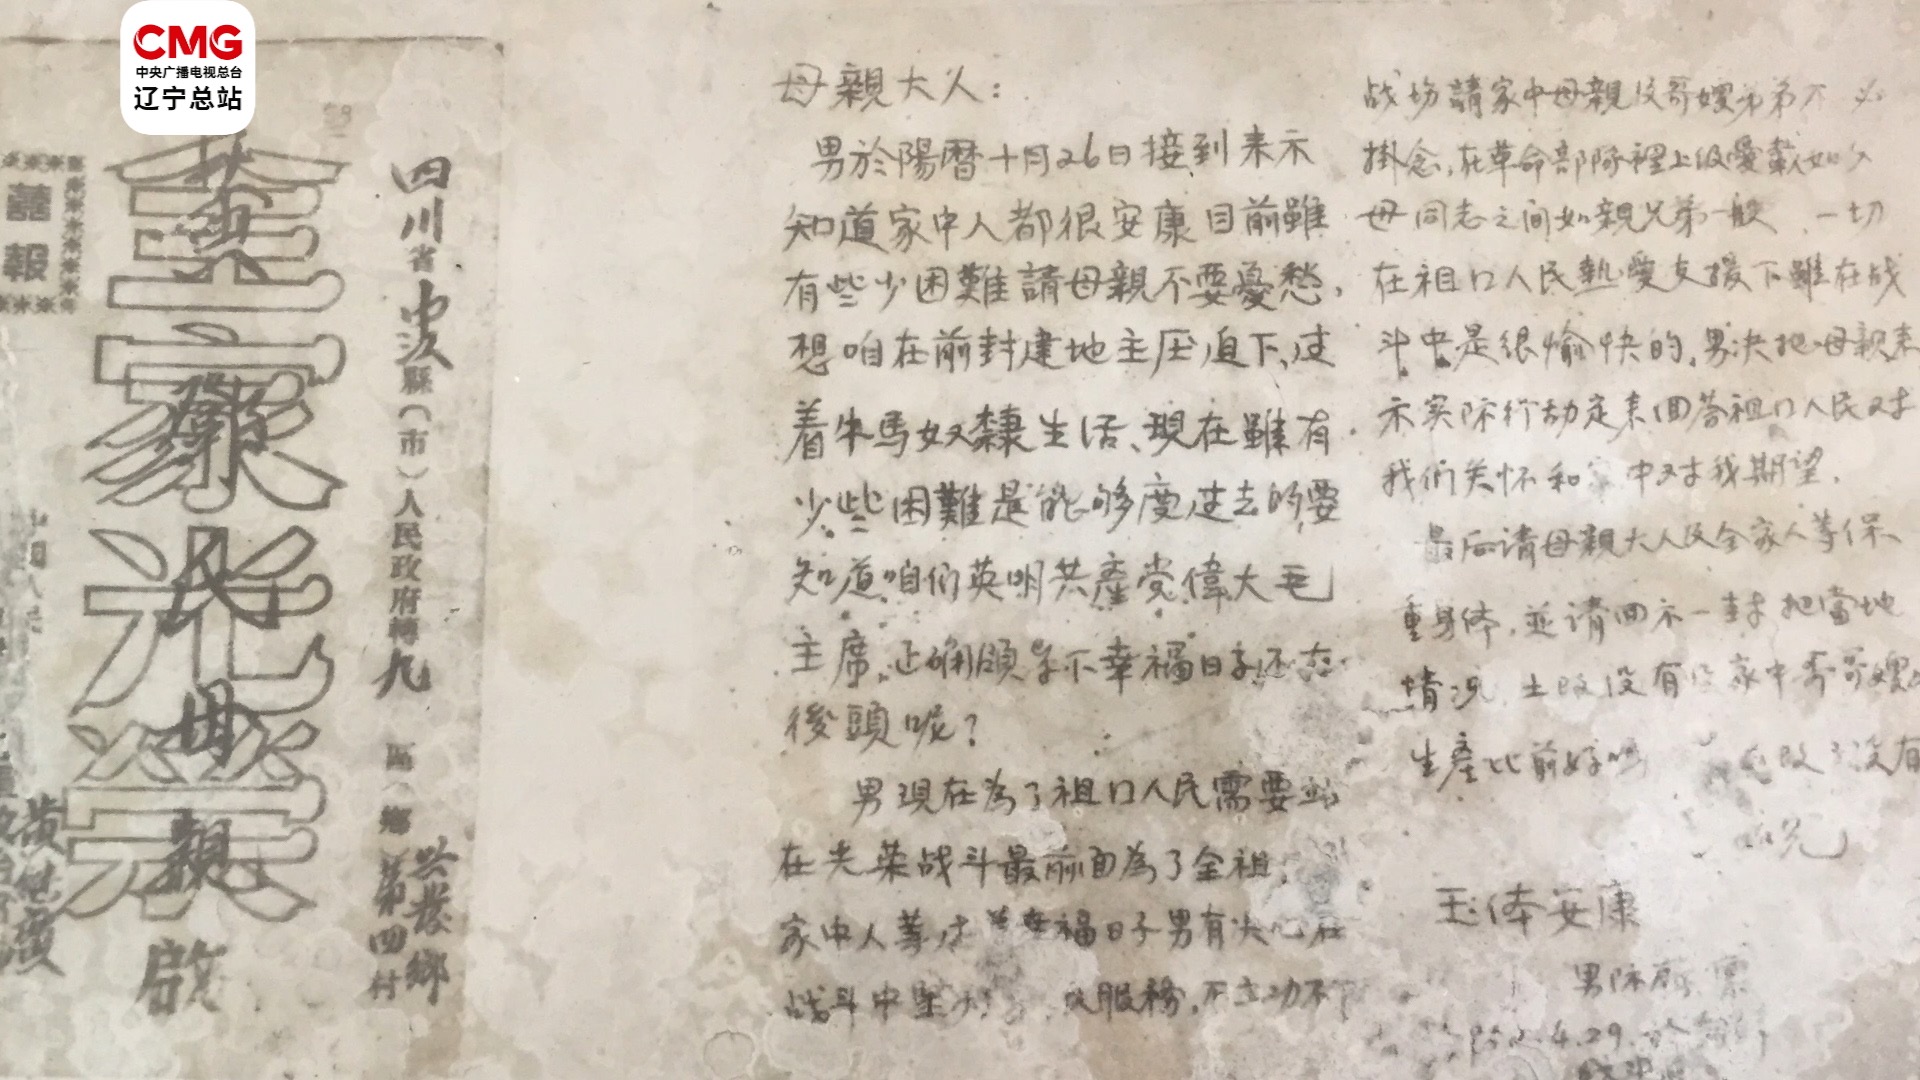 CMG
中央广播电视总台
辽宁总站
喜報
全家光荣
母親
啟
四川省中江縣（市）人民政府轉九區（鄉）
兴发鄉
第四村
黄继光
母親大人：
男於陽曆十月26日接到来示
知道家中人都很安康目前雖
有些少困難請母親不要憂愁，
想咱在前封建地主压迫下，过
着牛馬奴隸生活、現在雖有
少些困難是能够度过去的，要
知道咱们英明共產党偉大毛
主席，正确領导下幸福日子还在
後頭呢？
男現在為了祖囗人民需要站
在光荣战斗最前面為了全祖
家中人等过着幸福日子男有决心在
战斗中坚 服務，不立功不下
战场請家中母親及哥嫂弟弟不必
掛念，在革命部隊裡上级爱戴如父
母同志之间如親兄弟一般 一切
在祖囗人民熱爱支援下雖在战
斗中是很愉快的，男决把母親来
示实际行动定来回答祖囗人民对
我们关怀和家中对我期望，
最后請母親大人及全家人等保
重身体，並请回示一封把當地
情况，土改没有及家中哥哥嫂
生產比前好吗 改了没有
玉体安康
1952.4.29